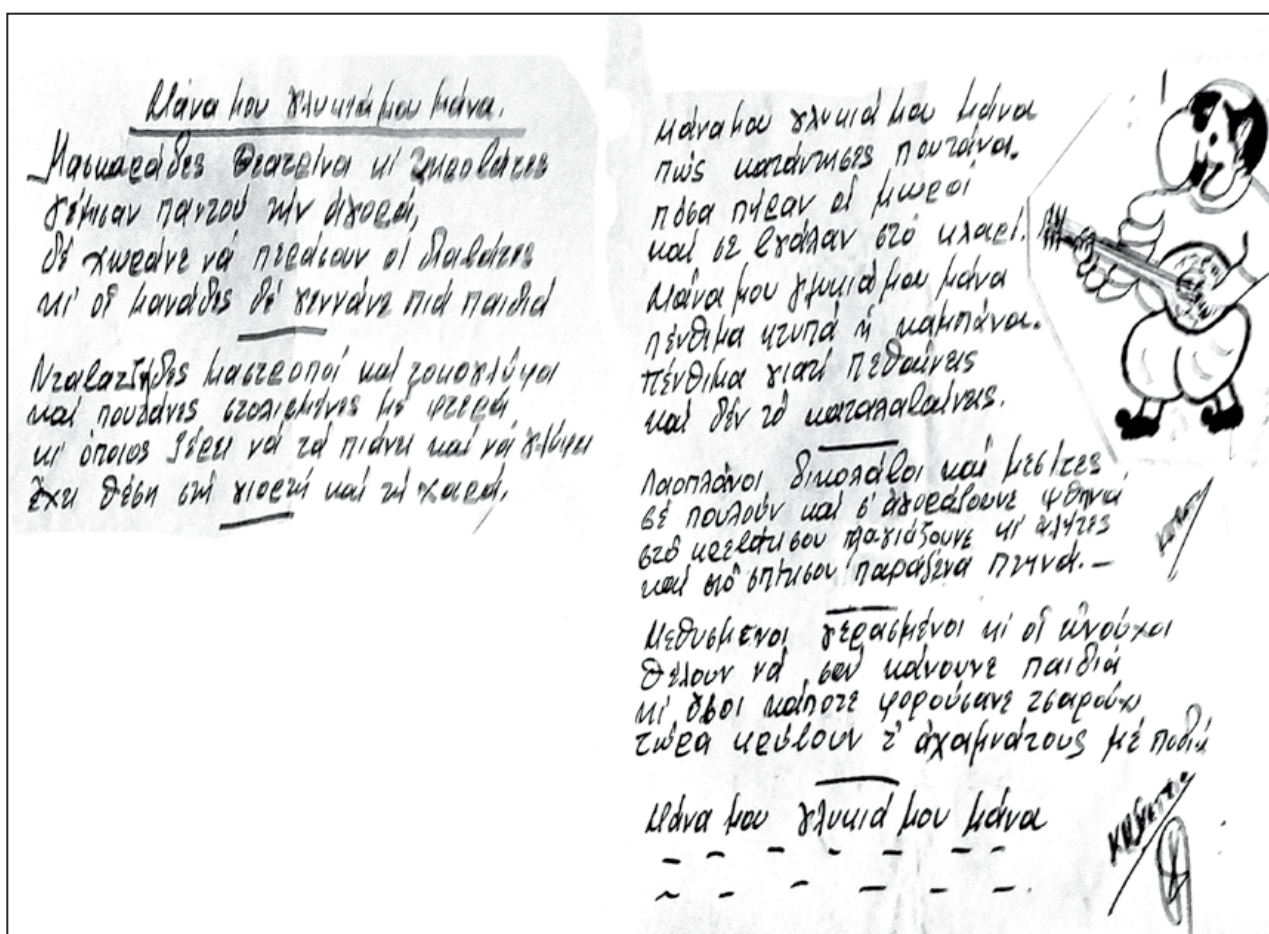 Μάνα μου γλυκιά μου μάνα.
Μασκαράδες θεατρίνα κι σκηροβάτες
γέμισαν παντού τήν ἀγορά,
δέ χωράνε νά περάσουν οἱ διαβάτες
κι οἱ μανάδες δέ γεννάνε πιά παιδιά
Νταβατζῆδες μαστροποί καί τοκογλύφοι
καί πουτάνες στολισμένες μέ φτερά
κι ὅποιος ξέρει νά τά πιάνει καί νά γλύφει
ἔχει θέση στή γιορτή καί τή χαρά.
Μάνα μου γλυκιά μου μάνα
πῶς κατάντησες πουτάνα.
πόσα πῆραν οἱ μωροί
καί σέ βγάλαν στό κλαρί.
Μάνα μου γλυκιά μου μάνα
πένθιμα κτυπά ἡ καμπάνα.
πένθιμα γιατί πεθαίνεις
καί δέν τό καταλαβαίνεις.
Λαοπλάνοι δικολάβοι καί μεσίτες
σέ πουλοῦν καί σ' ἀγοράζουνε φθηνά
στό κρεβάτι σου πλαγιάζουνε κι ἀλήτες
καί στό σπίτι σου παράξενα πτηνά. —
Μεθυσμένοι γερασμένοι κι οἱ εὐνοῦχοι
θέλουν νά σοῦ κάνουνε παιδιά
κι ὅσοι κάποτε φορούσανε τσαρούχι
τώρα κρύβουν τ' ἀχαμνά τους μέ ποδιά
Μάνα μου γλυκιά μου μάνα